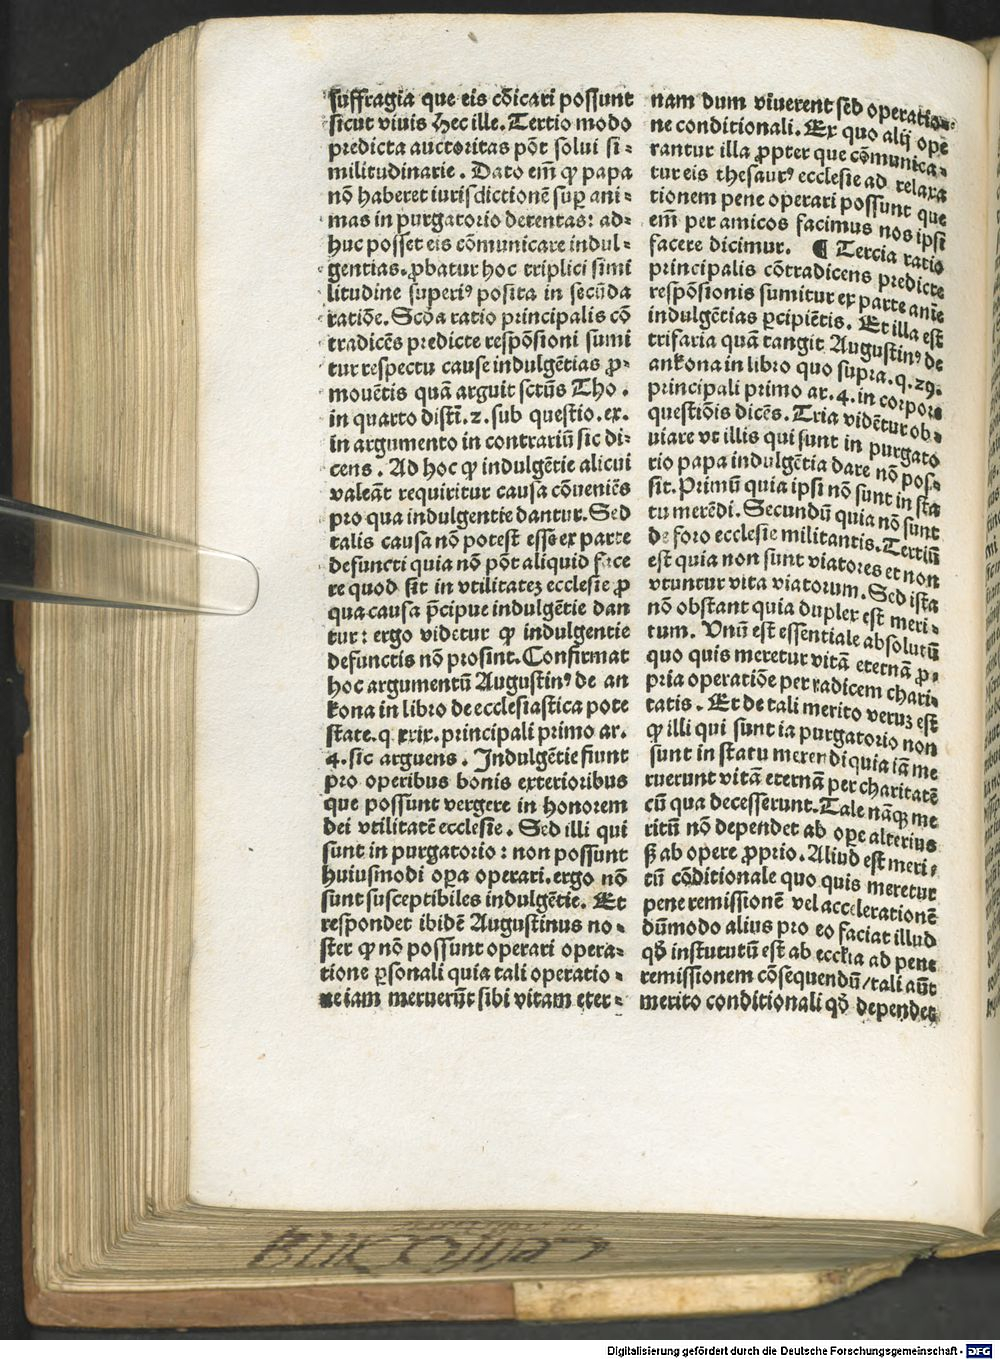 suffragia que eis cõicari possunt
sicut viuis Hec ille. Tertio modo
predicta auctoritas põt solui si⸗
militudinarie. Dato em̃ ꝙ papa
nõ haberet iurisdictionẽ suꝑ ani⸗
mas in purgatorio detentas: ad⸗
huc posset eis cõmunicare indul⸗
gentias. ꝓbatur hoc triplici simi
litudine superiꝰ posita in secũda
ratiõe. Scõa ratio principalis cõ
tradicẽs predicte respõsioni sumi
tur respectu cause indulgẽtias ꝓ⸗
mouẽtis quã arguit sctũs Tho.
in quarto disti. 2. sub questio. ex.
in argumento in contrariũ sic di⸗
cens. Ad hoc ꝙ indulgẽtie alicui
valeãt requiritur causa cõueniẽs
pro qua indulgentie dantur. Sed
talis causa nõ potest esse ex parte
defuncti quia nõ põt aliquid face
re quod sit in vtilitateꝫ ecclesie ꝓ
qua causa p̃cipue indulgẽtie dan
tur: ergo videtur ꝙ indulgentie
defunctis nõ prosint. Confirmat
hoc argumentũ Augustinꝰ de an
kona in libro de ecclesiastica pote
state. q xxix. principali primo ar.
4. sic arguens. Indulgẽtie fiunt
pro operibus bonis exterioribus
que possunt vergere in honorem
dei vtilitatẽ ecclesie. Sed illi qui
sunt in purgatorio: non possunt
huiusmodi oꝑa operari. ergo nõ
sunt susceptibiles indulgẽtie. Et
respondet ibidẽ Augustinus no⸗
ster ꝙ nõ possunt operari opera⸗
tione ꝑsonali quia tali operatio⸗
ne iam meruerũt sibi vitam eter⸗
nam dum viuerent sed operatio⸗
ne conditionali. Ex quo alij ope
rantur illa ꝓpter que cõmunica⸗
tur eis thesaurꝰ ecclesie ad relaxa
tionem pene operari possunt que
em̃ per amicos facimus nos ipsi
facere dicimur. ¶ Tercia ratio
principalis cõtradicens predicte
respõsionis sumitur ex parte anĩe
indulgẽtias ꝑcipiẽtis. Et illa est
trifaria quã tangit Augustinꝰ de
ankona in libro quo supra. q. 29.
principali primo ar. 4. in corpore
questiõis dicẽs. Tria vidẽtur ob⸗
uiare vt illis qui sunt in purgato
rio papa indulgẽtia dare nõ pos⸗
sit. Primũ quia ipsi nõ sunt in sta
tu merẽdi. Secundũ quia nõ sunt
de foro ecclesie militantis. Tertiũ
est quia non sunt viatores et non
vtuntur vita viatorum. Sed ista
nõ obstant quia duplex est meri⸗
tum. Vnũ est essentiale absolutũ
quo quis meretur vitã eternã ꝓ⸗
pria operatiõe per radicem chari⸗
tatis. Et de tali merito veruꝫ est
ꝙ illi qui sunt ia purgatorio non
sunt in statu merendi quia iã me
ruerunt vitã eternã per charitatẽ
cũ qua decesserunt. Tale nãqꝫ me
ritũ nõ dependet ab oꝑe alterius
ẞ ab opere ꝓprio. Aliud est meri⸗
tũ cõditionale quo quis meretur
pene remissionẽ vel accelerationẽ
dũmodo alius pro eo faciat illud
qđ institutũ est ab eccľia ad pene
remissionem cõsequendũ/tali aũt
merito conditionali qđ dependet
Digitalisierung gefördert durch die Deutsche Forschungsgemeinschaft - DFG